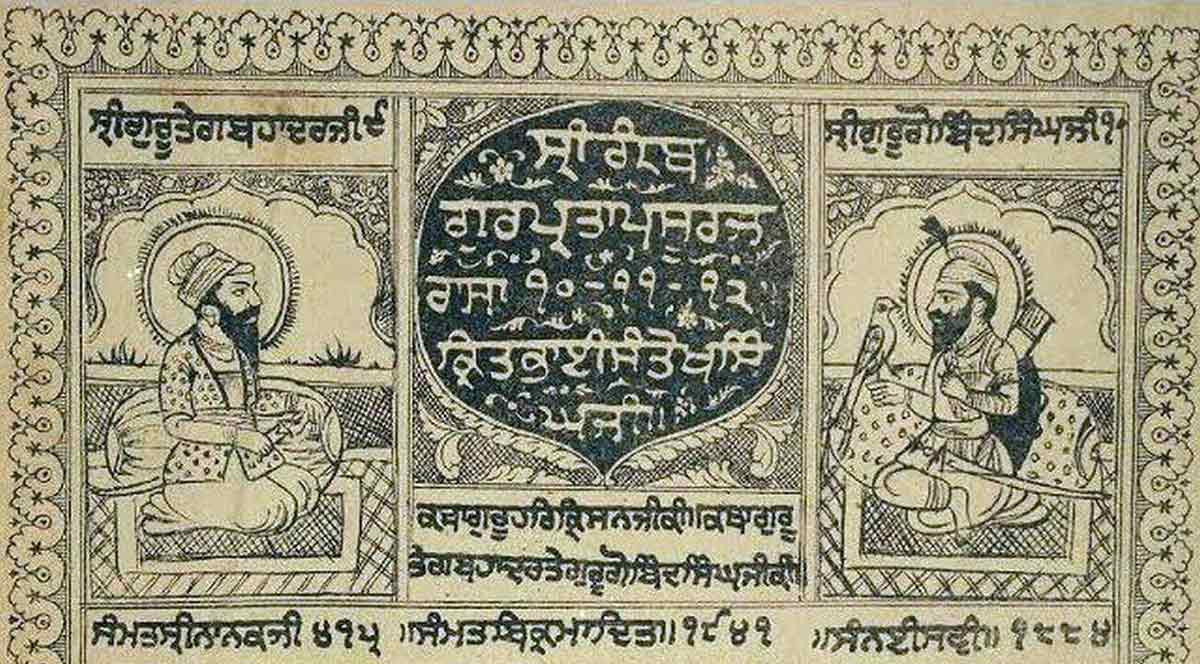 ਸ੍ਰੀਗੁਰੂਤੇਗਬਹਾਦਰਜੀ੯
ਸ੍ਰੀ ਗੰਰਥ
ਗੁਰਪ੍ਰਤਾਪਸੂਰਜ
ਰਾਸਾ ੧੦-੧੧-੧੨
ਕ੍ਰਿਤਭਾਈਸੰਤੋਖਸਿੰ
ਘਜੀ॥
ਸ੍ਰੀਗੁਰੂਗੋਬਿੰਦਸਿੰਘਜੀ੧੦
ਕਥਾਗੁਰੂਹਰਿਕ੍ਰਿਸਨਜੀਕੀ॥ਕਥਾਗੁਰੂ
ਤੇਗਬਹਾਦਰਤੇਗੁਰੂਗੋਬਿੰਦਸਿੰਘਜੀਕੀ॥
ਸੰਮਤਸ੍ਰੀਨਾਨਕਜੀ ੪੧੫ ॥ਸੰਮਤਬਿਕ੍ਰਮਾਦਿਤ॥ ੧੯੪੧ ॥ਸੰਨਈਸਵੀ॥ ੧੮੮੪